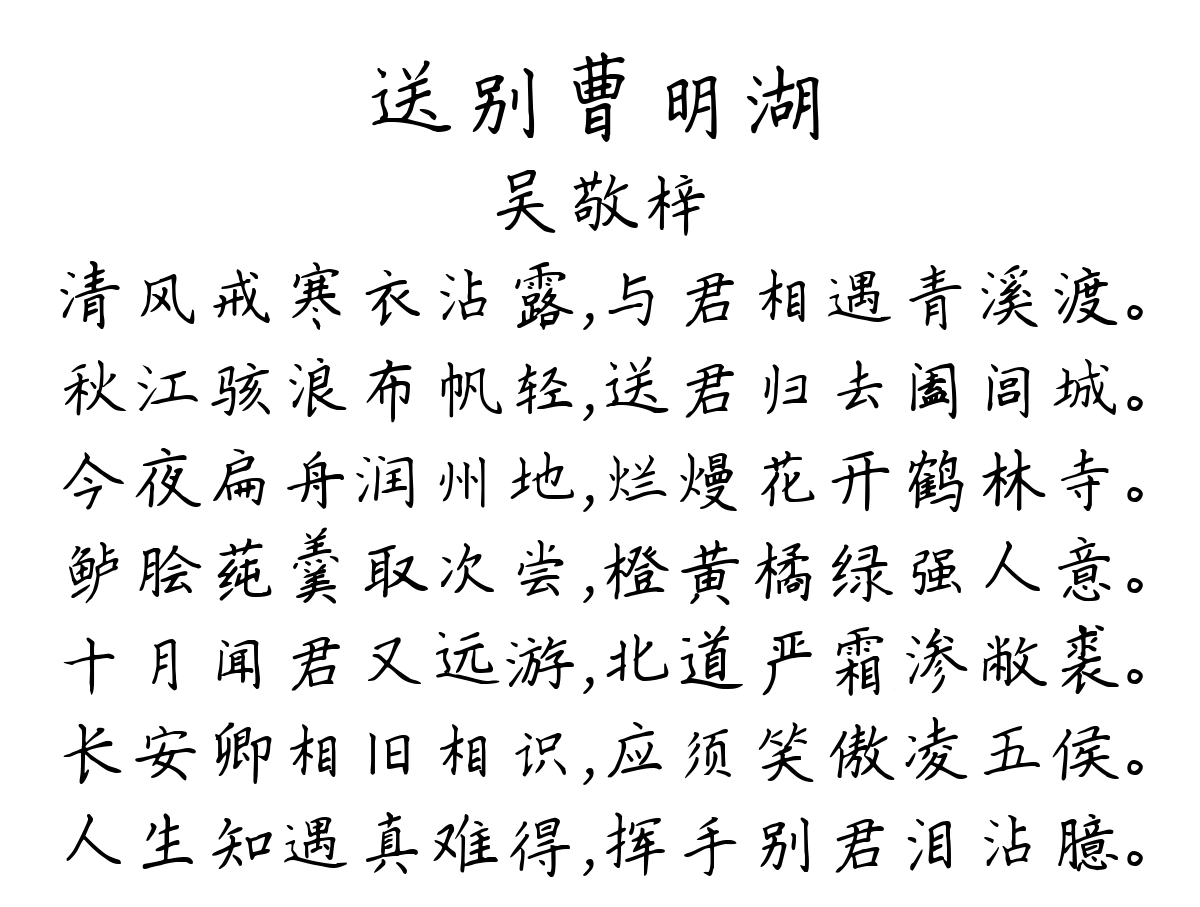 送别曹明湖
吴敬梓
清风戒寒衣沾露,与君相遇青溪渡。
秋江骇浪布帆轻,送君归去阖闾城。
今夜扁舟润州地,烂熳花开鹤林寺。
鲈脍莼羹取次尝,橙黄橘绿强人意。
十月闻君又远游,北道严霜渗敝裘。
长安卿相旧相识,应须笑傲凌五侯。
人生知遇真难得,挥手别君泪沾臆。